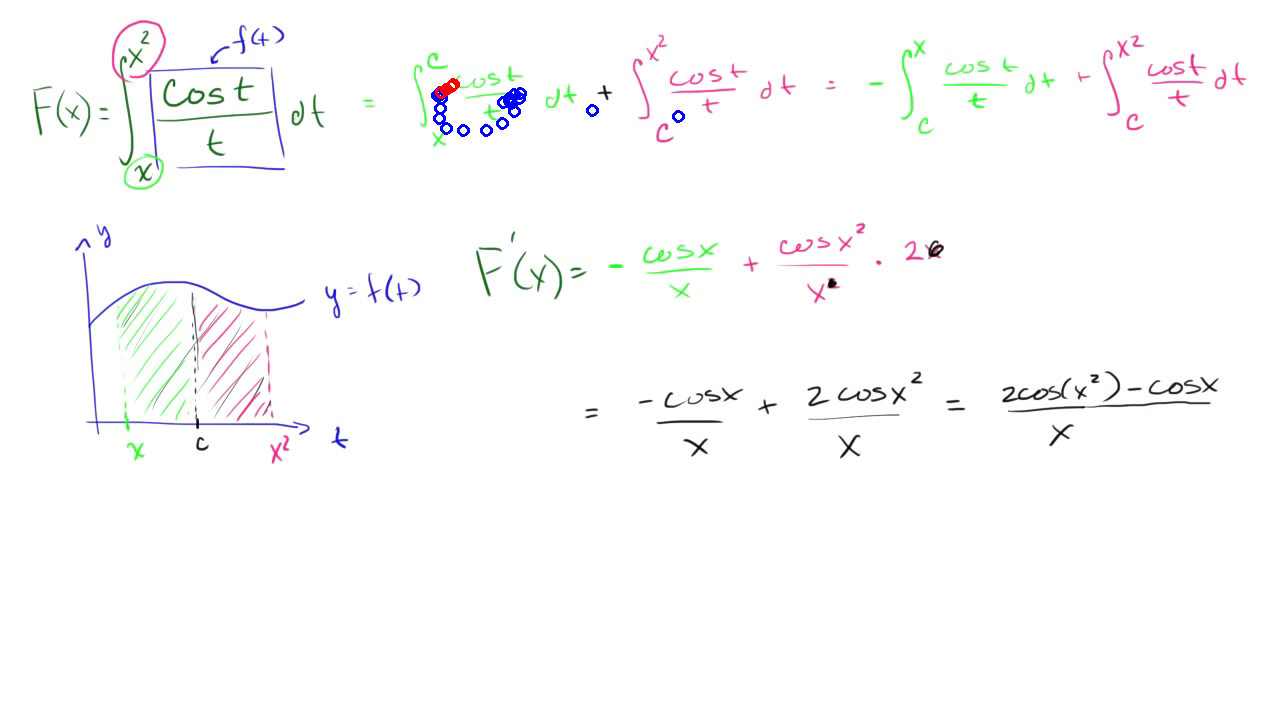 f(t)
F(x) = ∫ₓ^{x²} cos t / t dt = ∫ₓ^c cos t / t dt + ∫_c^{x²} cos t / t dt = - ∫_c^x cos t / t dt + ∫_c^{x²} cos t / t dt
y
y = f(t)
x c x² t
F'(x) = - cos x / x + cos x² / x · 2
= -cos x / x + 2 cos x² / x = 2cos(x²) - cos x / x